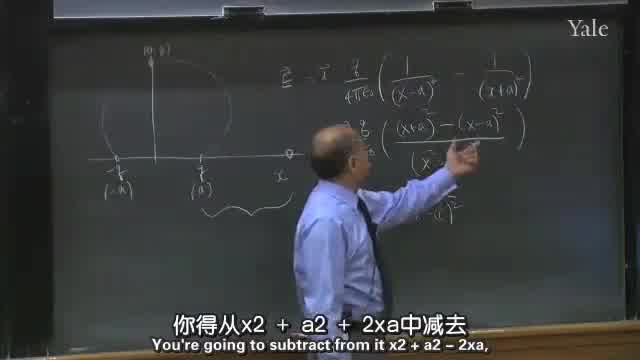 Yale
(0, y)
E = i q/4πε₀ ( 1/(x-a)² - 1/(x+a)² )
( (x+a)² - (x-a)²
(x²
-a²)²
-q q x
(-a) (a)
你得从x2 + a2 + 2xa中减去
You're going to subtract from it x2 + a2 - 2xa,